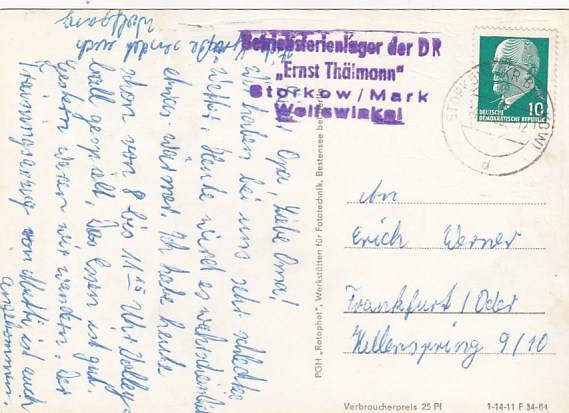 Betriebsferienlager der DR
„Ernst Thälmann“
Storkow/Mark
Wolfswinkel
STORKOW
d
10
DEUTSCHE
DEMOKRATISCHE REPUBLIK
Opa, liebe Oma!
Wir haben bei uns sehr schlechtes
Wetter. Heute wird es wahrscheinlich
etwas wärmer. Ich habe heute
von 8 bis 11 15 Uhr Volley-
ball gespielt. Das Essen ist gut.
Gestern waren wir wandern. Der
Trainingsanzug von Mutti ist auch
angekommen.
Grüße sendet euch
Wolfgang
PGH „Rotophot“, Werkstätten für Fototechnik, Bestensee bei
An
Erich Werner
Frankfurt/Oder
Kellenspring 9/10
Verbraucherpreis 25 Pf
1-14-11 F 34-64